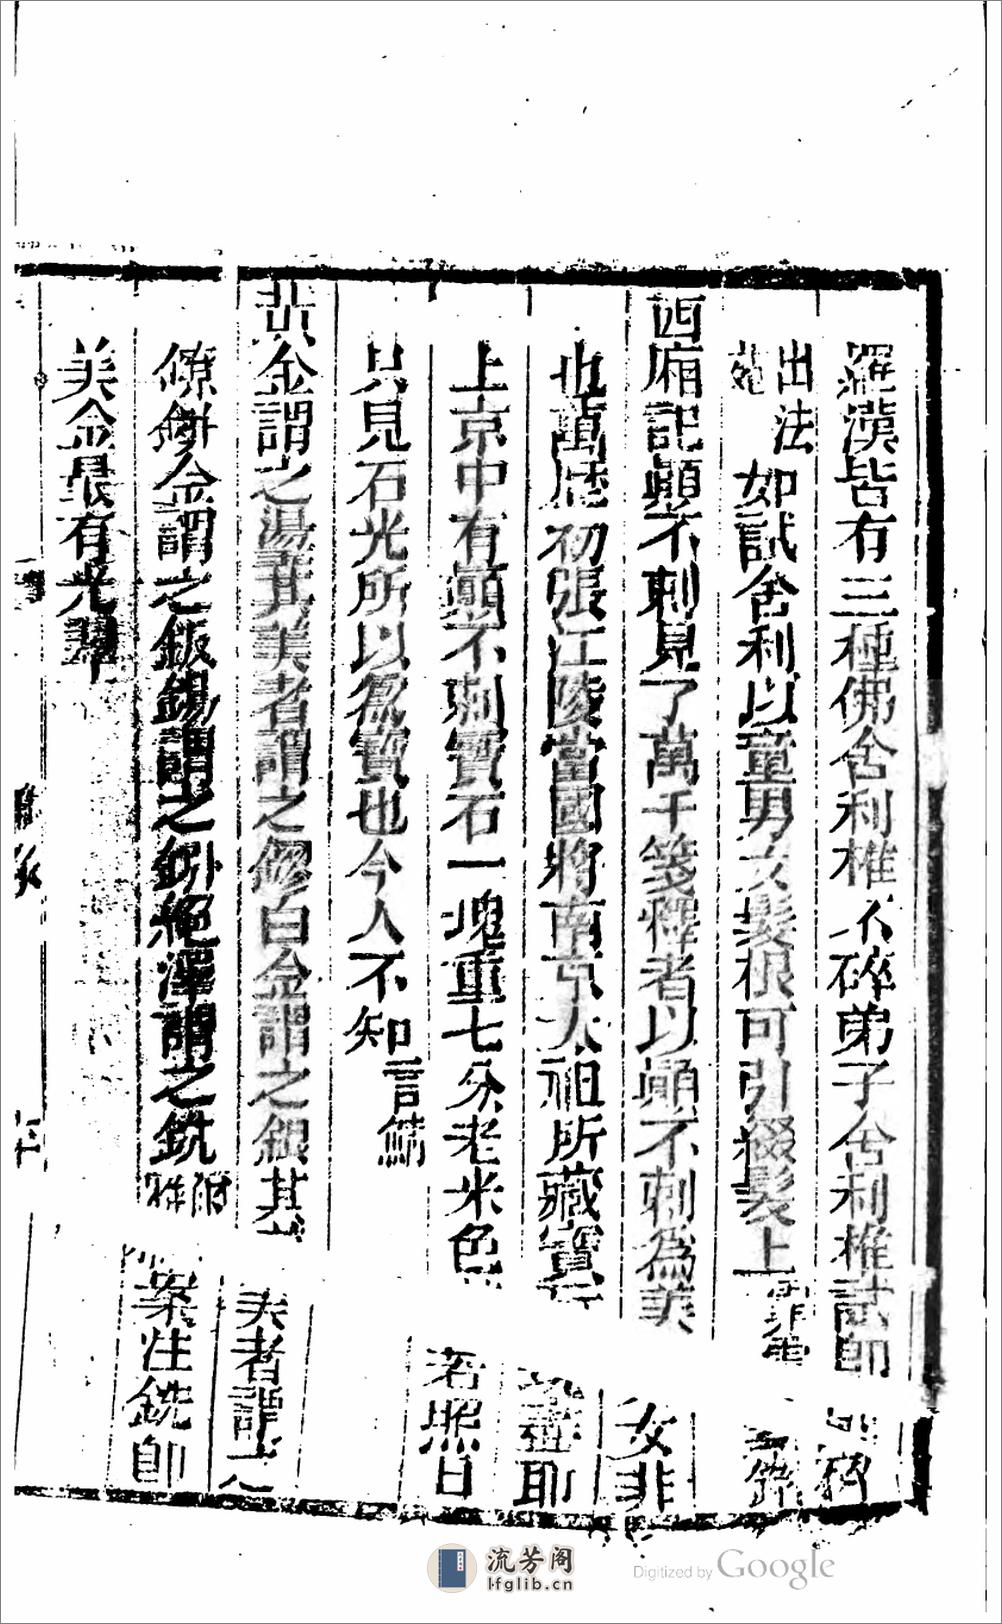 羅漢皆有三種佛舍利椎不碎弟子舍利椎試即
出法苑如試舍利以童男女髮根可引綴髮上霏雪
西廂記顛不剌見了萬千箋釋者以顛不剌為美女非
也萬歷初張江陵當國將南京太祖所藏寶取
上京中有顛不剌寶石一塊重七分老米色若照日
只見石光所以為寶也今人不知言鯖
黃金謂之湯其美者謂之鏐白金謂之銀其美者謂之
鐐鉼金謂之鈑錫謂之鈏絕澤謂之銑附雅案注銑即
美金最有光澤
流芳阁
lfglib.cn
Digitized by Google